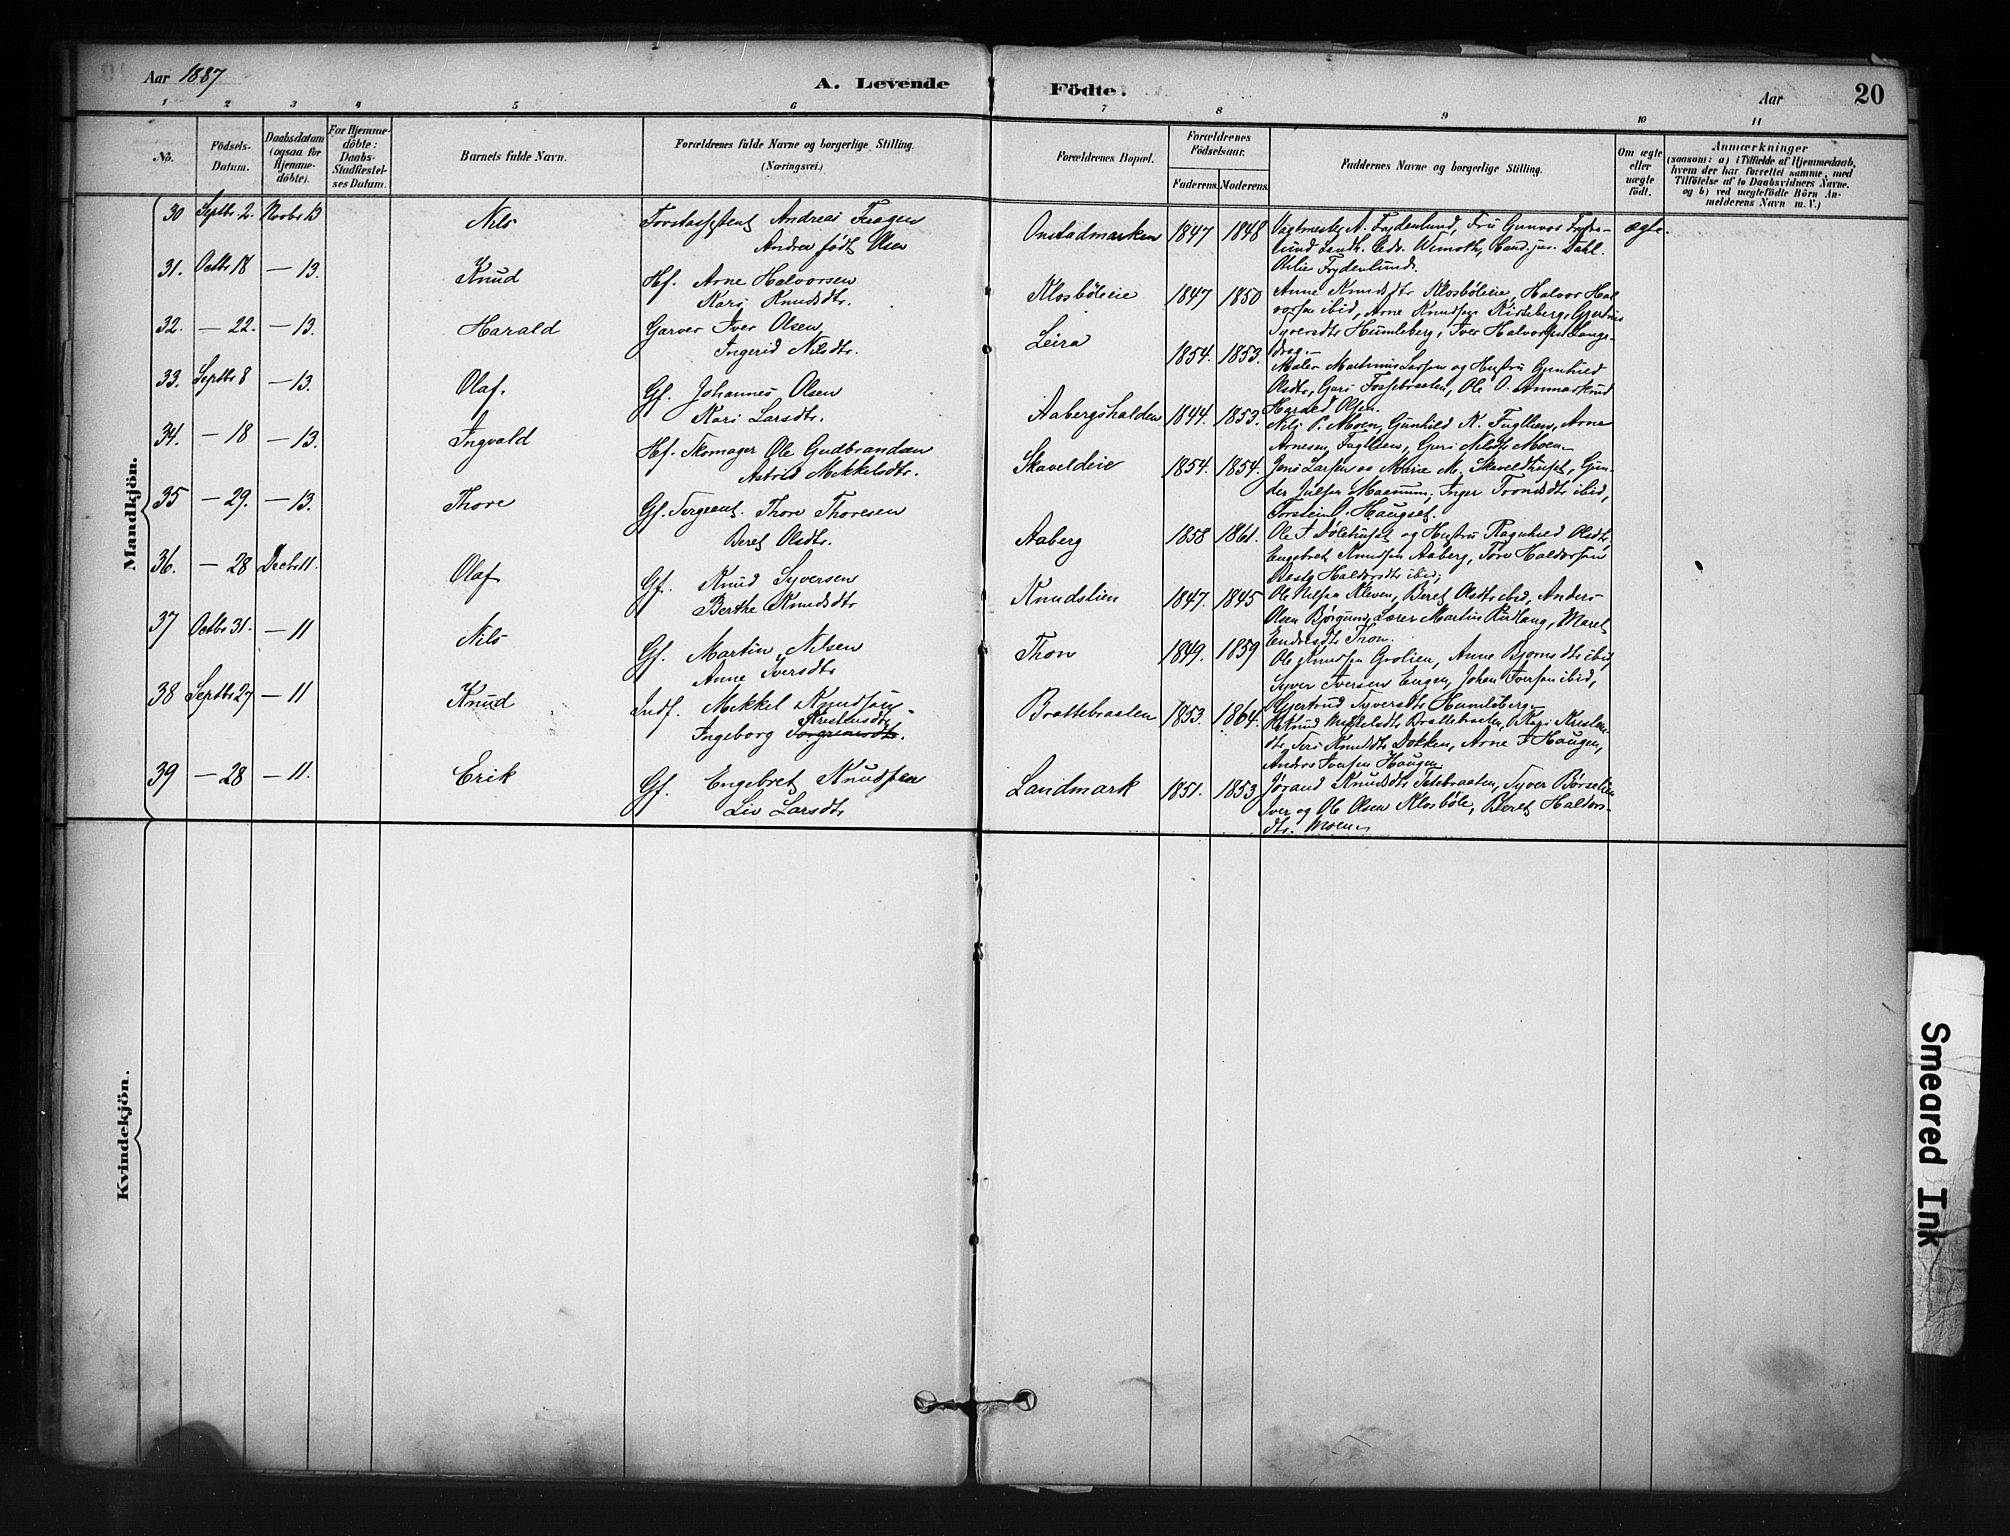 Aar 1887
A. Levende Födte.
Aar
20
1 2 3 4 5 6 7 8 9 10 11
No.
Födsels-Datum.
Daabsdatum (ogsaa for Hjemme-döbte).
For Hjemme-döbte: Daabs-Stadfæstel-ses Datum.
Barnets fulde Navn.
Forældrenes fulde Navne og borgerlige Stilling. (Næringsvei.)
Forældrenes Bopæl.
Forældrenes Födselsaar.
Faderens. Moderens.
Faddernes Navne og borgerlige Stilling.
Om ægte eller uægte födt.
Anmærkninger
(saasom: a) i Tilfælde af Hjemmedaab, hvem der har forrettet samme, med Tilföielse af to Daabsvidners Navne, og b) ved uægtefödte Börn An-melderens Navn m. V.)
Mandkjön.
30 Septbr 2. Novbr 13 Nils Forstassistent Andreas Andrea født Olsen Onstadmarken 1847 1848 A. Frydenlund, Fru Gunvor Fryden-lund, Landh. Edv. Cand. jur. Dahl. Othilie Frydenlund. ægte.
31. Octbr 18 — 13. Knud Hf. Arne Halvorsen Kari Knudsdtr. Klosbøleie 1847 1850 Anne Knudsdtr Klosbøleie, Halvor Hal-vorsen ibid, Arne Knudsen Gjertrud Syversdtr Humleberg, Iver Halvorsen Lange-drag.
32. — 22. — 13. Harald Garver Iver Olsen Ingerid Nilsdtr. Leira 1854. 1853. Maler Martinus Larsen og Hustru Gunhild Olsdtr, Guri Fossebraaten, Ole O.
33. Septbr 8 — 13. Olaf. Gf. Johannes Olsen Kari Larsdtr. Aabergshalden 1844. 1853. Nils P. Moen, Gunhild K. Fuglien, Arne Arnesen Fuglien, Guri Nilsdtr Moen
34. — 18 — 13. Ingvald Hf. Skomager Ole Gudbrandsen Astrid Mikkelsdtr. Skaveldeie 1854. 1854. Jens Larsen og Marie M. Inger Trondsdtr ibid, Torstein O. Haugset.
35 — 29. — 13. Thore Gf. Sergeant. Thore Thoresen Beret Olsdtr. Aaberg 1858 1861. Ole og Hustru Ragnhild Olsdtr. Engebret Knudsen Aaberg, Tore Haldorsen Haldorsdtr ibid;
36. — 28 Decbr 11. Olaf Gf. Knud Syversen Berthe Knudsdtr Knudslien 1847. 1845 Ole Nilsen Kleven, Beret Olsdtr ibid, Anders Olsen Bjørgum, Lærer Martin Marit Endresdtr Thon.
37 Octbr 31. — 11 Nils Gf. Martin Nilsen Anne Iversdtr Thon 1849. 1859 Ole Knudsen Grolien, Anne Bjørnsdtr ibid, Syver Iversen Engen, Johan Iversen ibid, Gjertrud Syversdtr Humleberg.
38 Septbr 27 — 11 Knud Indf. Mikkel Knudsen Ingeborg Kristensdtr. Brattebraaten 1853. 1864. Knud Brattebraaten, Kari Kristens-dtr, Siri Knudsdtr Dokken, Arne I Haugen, Anders Iversen Haugen
39 — 28 — 11. Erik Gf. Engebret Knudsen Liv Larsdtr Landmark 1851. 1853 Jørand Knudsdtr Syver Børselien, Iver og Ole Olsen Klosbøle, Beret Haldors-dtr. Moen.
Kvindekjön.
Smeared Ink